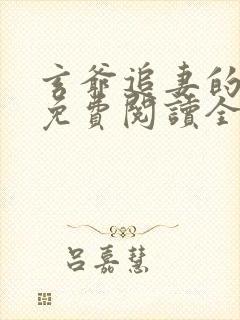 玄爺追妻的
免費閱讀全
呂嘉慧